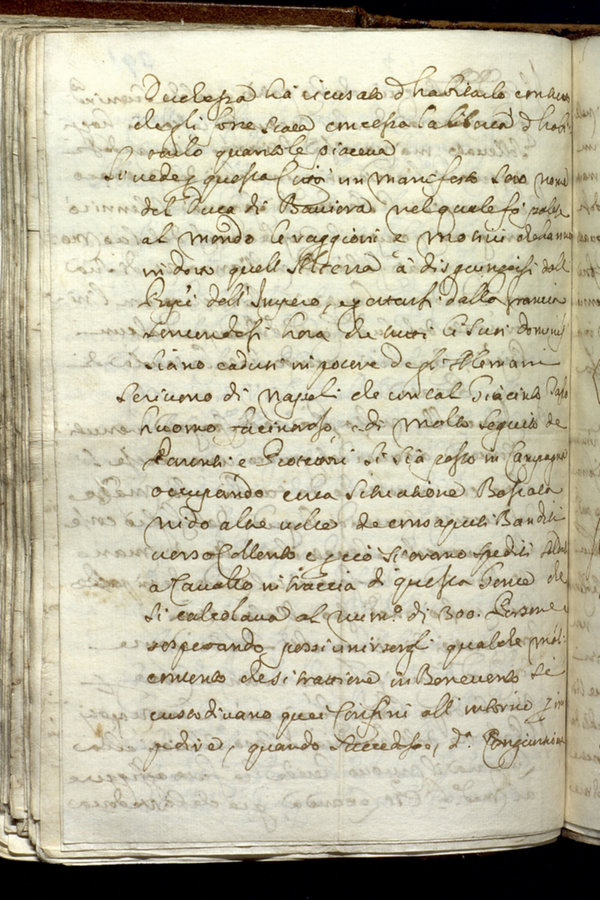 Duchessa hà ricusato d'habitarlo
degli concessa la libertà d'habi-
tarlo quando le piacerà
Si vede per questa Città un manifesto sotto nome
del Duca di Baviera nel quale fà palese
al mondo le raggioni e motivi che hanno
indotto quell'Altezza à disgiungersi dall
Prpi dell'Impero, e gettarsi dalla Francia
sentendosi hora che tutti li suoi dominij
siano caduti in potere degl'Alemani
Scrivono di Napoli che un tal Giacinto
huomo facinoroso e di molto seguito de
Parenti e Protettori si sia posto in Campagna
occupando certa situatione Boscata
nido altre volte de Banditi
verso e perciò si erano spediti
a Cavallo in traccia di questa gente che
si calcolava al num.º di 300. Persone e
sospettando possi unirsegli qualche mal
contento che si trattiene in Benevento si
custodivano quei Confini all'intorno
pedire, quando succedesse, d.ª Congiuntione